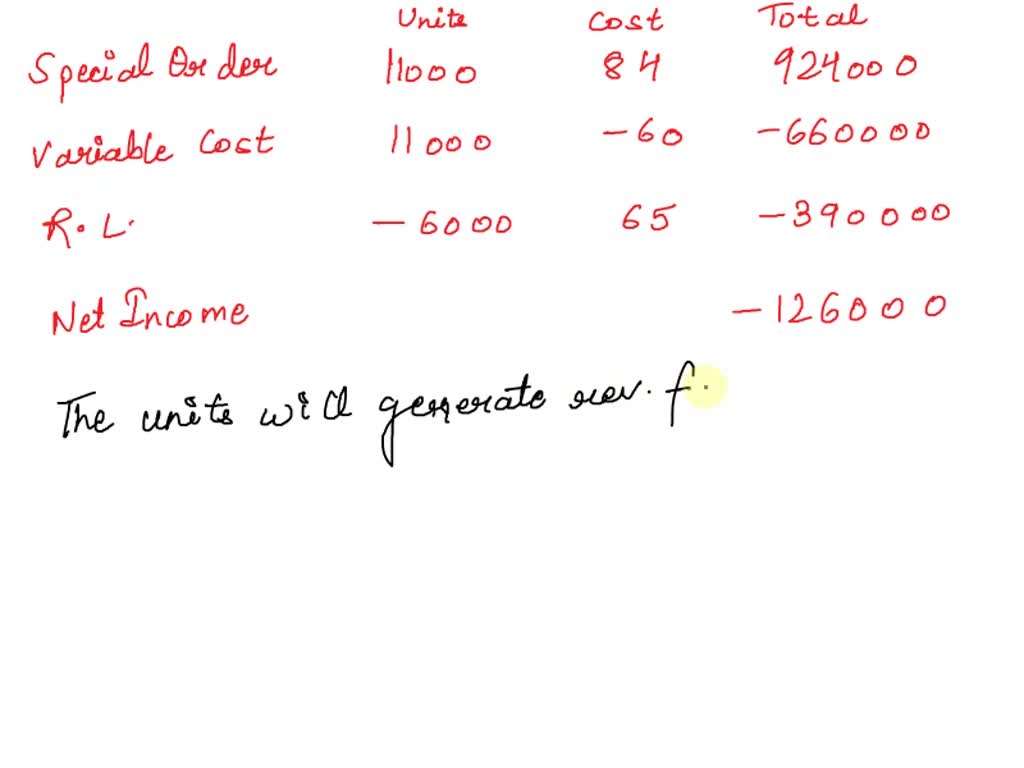 Units Cost Total
Special Order 11000 84 924000
Variable Cost 11000 -60 -660000
R.L. -6000 65 -390000
Net Income -126000
The units will generate rev. f.